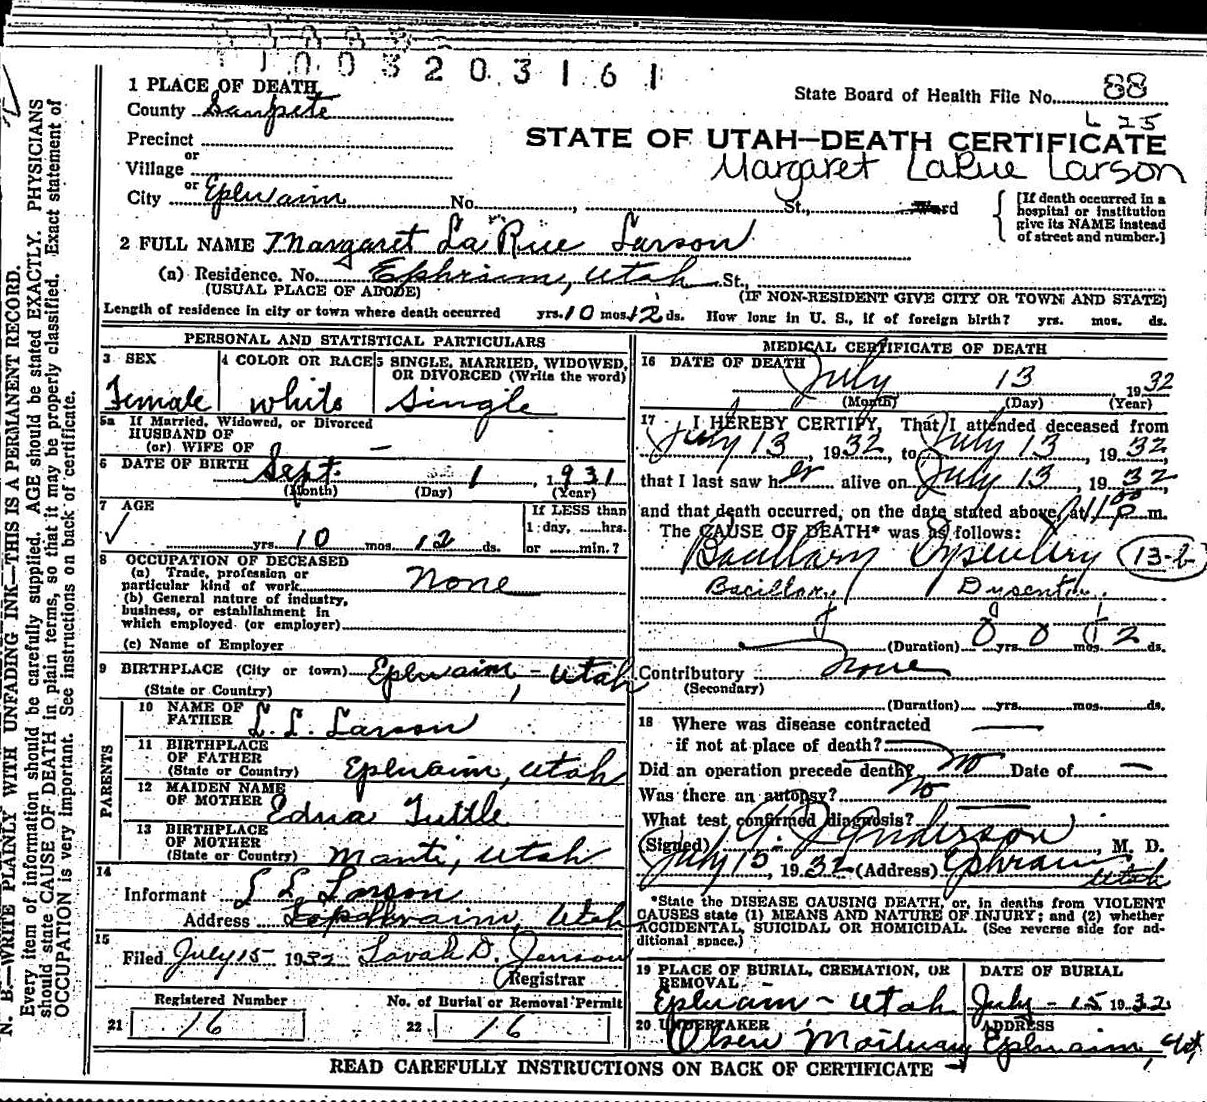 1003203161
State Board of Health File No. 88
L 25
STATE OF UTAH—DEATH CERTIFICATE
Margaret LaRue Larson
1 PLACE OF DEATH
County Sanpete
Precinct
or
Village
or
City Ephraim No. , St., Ward
[If death occurred in a
hospital or institution
give its NAME instead
of street and number.]
2 FULL NAME Margaret La Rue Larson
(a) Residence. No. Ephraim, Utah St.,
(USUAL PLACE OF ABODE) (IF NON-RESIDENT GIVE CITY OR TOWN AND STATE)
Length of residence in city or town where death occurred yrs. 10 mos. 12 ds. How long in U. S., if of foreign birth? yrs. mos. ds.
PERSONAL AND STATISTICAL PARTICULARS
3 SEX
Female
4 COLOR OR RACE
white
5 SINGLE, MARRIED, WIDOWED,
OR DIVORCED (Write the word)
Single
5a If Married, Widowed, or Divorced
HUSBAND OF
(or) WIFE OF —
6 DATE OF BIRTH Sept. 1, 1931
(Month) (Day) (Year)
7 AGE
yrs. 10 mos. 12 ds.
If LESS than
1 day, hrs.
or min.?
8 OCCUPATION OF DECEASED
(a) Trade, profession or
particular kind of work None
(b) General nature of industry,
business, or establishment in
which employed (or employer)
(c) Name of Employer
9 BIRTHPLACE (City or town) Ephraim - Utah
(State or Country)
PARENTS
10 NAME OF
FATHER L. L. Larson
11 BIRTHPLACE
OF FATHER
(State or Country) Ephraim, Utah
12 MAIDEN NAME
OF MOTHER Edna Tuttle
13 BIRTHPLACE
OF MOTHER
(State or Country) Manti, Utah
14
Informant L L Larson
Address Ephraim, Utah
15
Filed July 15 1932 D. Jenson
Registrar
Registered Number
21 16
No. of Burial or Removal Permit
22 16
MEDICAL CERTIFICATE OF DEATH
16 DATE OF DEATH
July 13 1932
(Month) (Day) (Year)
17 I HEREBY CERTIFY, That I attended deceased from
July 13, 1932, to July 13, 1932,
that I last saw her alive on July 13, 1932,
and that death occurred, on the date stated above, at 11 00 p m.
The CAUSE OF DEATH* was as follows:
Bacillary Dysentery 13-b
Bacillary Dysentery
(Duration) 0 yrs. 0 mos. 2 ds.
Contributory None
(Secondary)
(Duration) yrs. mos. ds.
18 Where was disease contracted
if not at place of death? —
Did an operation precede death? No Date of —
Was there an autopsy? No
What test confirmed diagnosis?
(Signed) Anderson, M. D.
July 15, 1932 (Address) Ephraim
Utah
*State the DISEASE CAUSING DEATH, or, in deaths from VIOLENT
CAUSES state (1) MEANS AND NATURE OF INJURY; and (2) whether
ACCIDENTAL, SUICIDAL OR HOMICIDAL. (See reverse side for ad-
ditional space.)
19 PLACE OF BURIAL, CREMATION, OR
REMOVAL
Ephraim - Utah
DATE OF BURIAL
July - 15 1932
20 UNDERTAKER
Olsen Mortuary
ADDRESS
Ephraim, Utah
READ CAREFULLY INSTRUCTIONS ON BACK OF CERTIFICATE
N. B.—WRITE PLAINLY WITH UNFADING INK—THIS IS A PERMANENT RECORD.
Every item of information should be carefully supplied. AGE should be stated EXACTLY. PHYSICIANS
should state CAUSE OF DEATH in plain terms, so that it may be properly classified. Exact statement of
OCCUPATION is very important. See instructions on back of certificate.